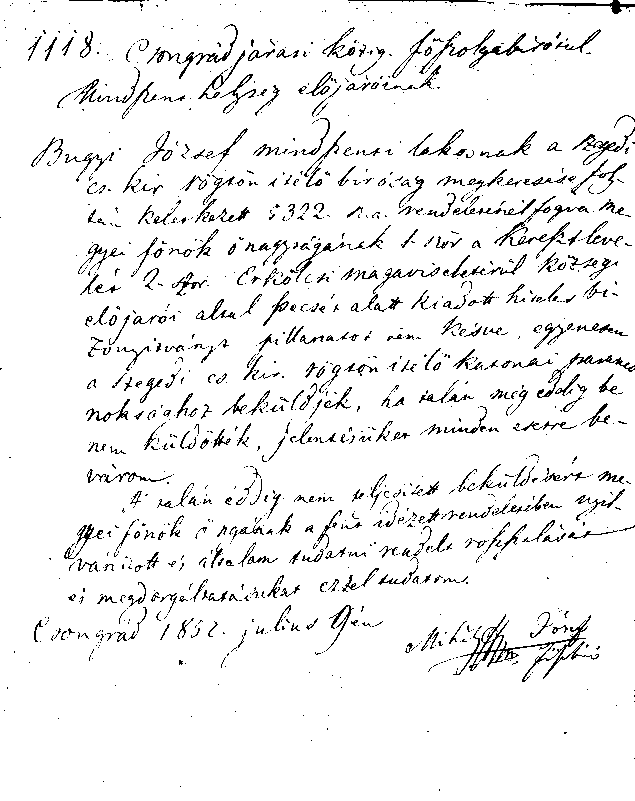 1118. Csongrád járási közig. főszolgabirótul
Mindszent helység elöljáróinak.
Bugyi József mindszenti lakosnak a szegedi
cs. kir rögtön itélő biróság megkeresése foly-
tán keletkezett 5322. sz. a. rendeleténél fogva me-
gyei főnök ő nagyságának 1-ször a Keresztleve-
lét 2-szor Erkölcsi magaviseletérül községi
elöljárói által pecsét alatt kiadott hiteles bi-
zonyitványt pillanatot sem késve, egyenesen
a szegedi cs. kir. rögtön itélő katonai parancs
noksághoz beküldjék, ha talán még eddig be
nem küldötték, jelentésüket minden esetre be-
várom.
A talán eddig nem teljesitett beküldésért me-
gyei főnök ő ngának a fent idézett rendeletében nyil-
vánitott és általam tudatni rendelt roszszalását
és megdorgáltatásukat ezzel tudatom.
Csongrád 1852. julius 9én